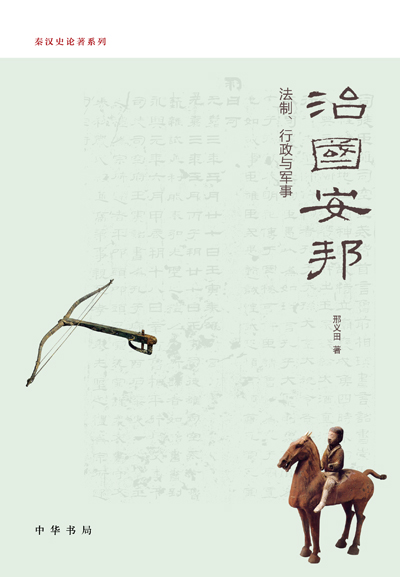 秦汉史论著系列
治國安邦
法制、行政与军事
邢义田 著
中华书局